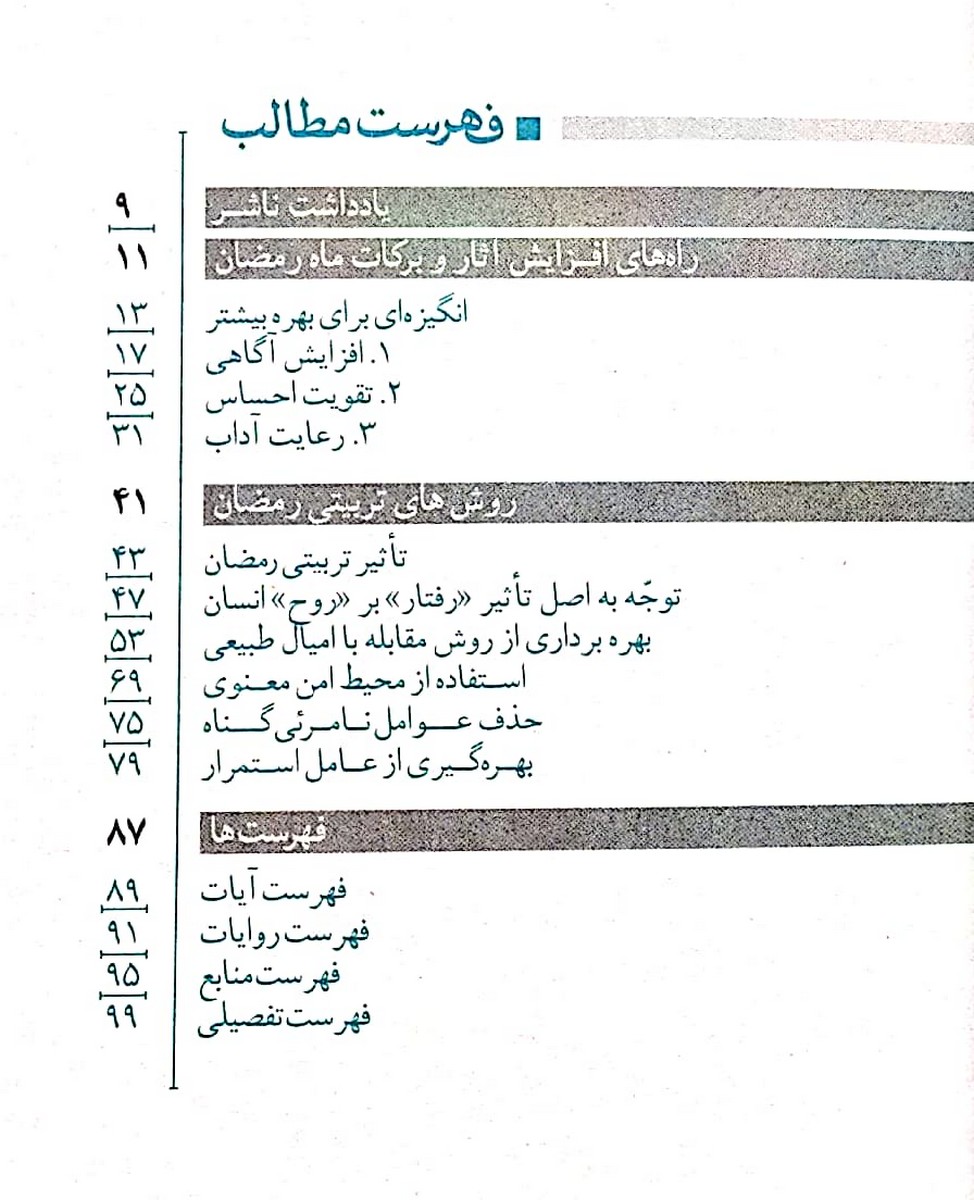 فهرست مطالب
یادداشت ناشر ۹
راه‌های افزایش آثار و برکات ماه رمضان ۱۱
انگیزه‌ای برای بهره بیشتر ۱۳
۱. افزایش آگاهی ۱۷
۲. تقویت احساس ۲۵
۳. رعایت آداب ۳۱
روش های تربیتی رمضان ۴۱
تأثیر تربیتی رمضان ۴۳
توجّه به اصل تأثیر «رفتار» بر «روح» انسان ۴۷
بهره برداری از روش مقابله با امیال طبیعی ۵۳
استفاده از محیط امن معنوی ۶۹
حذف عوامل نامرئی گناه ۷۵
بهره‌گیری از عامل استمرار ۷۹
فهرست‌ها ۸۷
فهرست آیات ۸۹
فهرست روایات ۹۱
فهرست منابع ۹۵
فهرست تفصیلی ۹۹